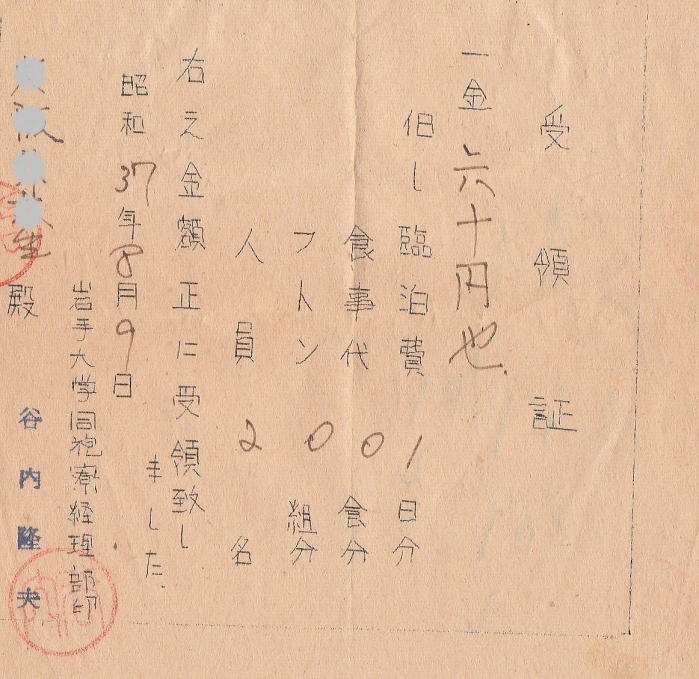 受領証
一金 六十円也.
但し 臨泊費 1 日分
食事代 0 食分
フトン 0 組分
人員 2 名
右之金額正に受領致し
ました.
昭和37年8月9日
岩手大学同袍寮経理部印
生 殿
谷内隆夫